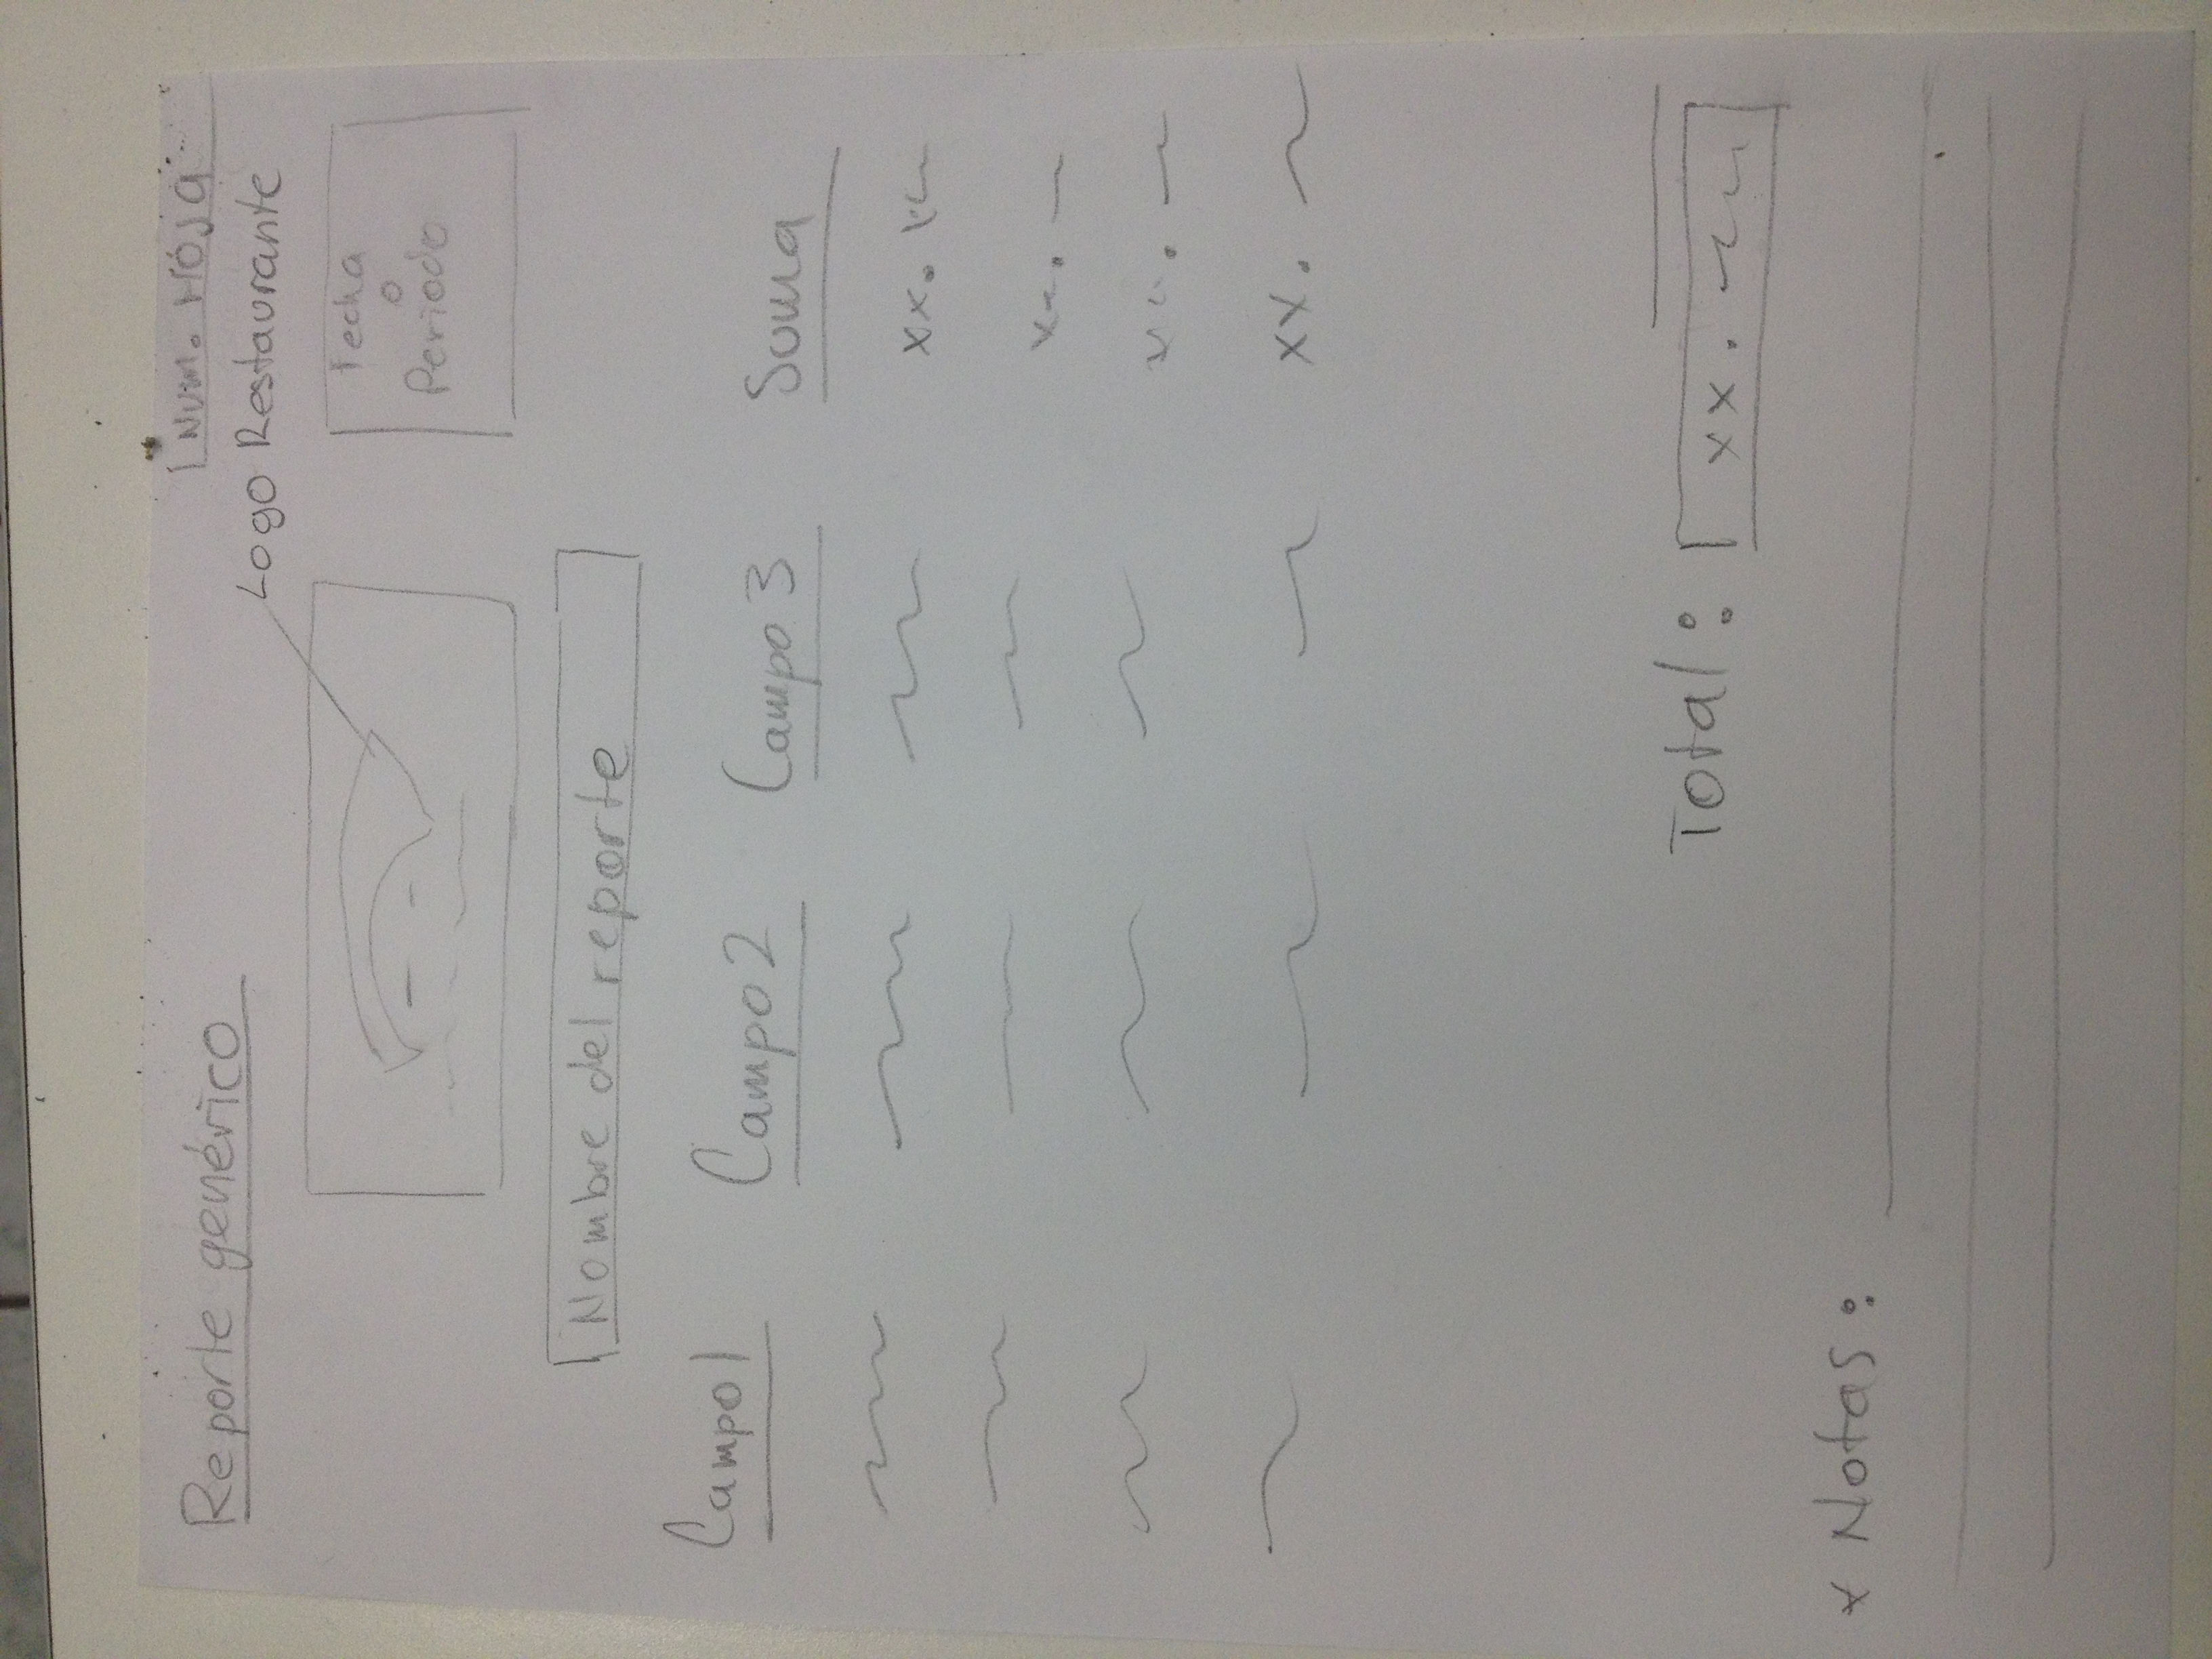 Reporte genérico
Num. Hoja
Logo Restaurante
Fecha
o
Periodo
Nombre del reporte
Campo1 Campo2 Campo3 Suma
xx.
xx.
xx.
xx.
Total: xx.
* Notas: